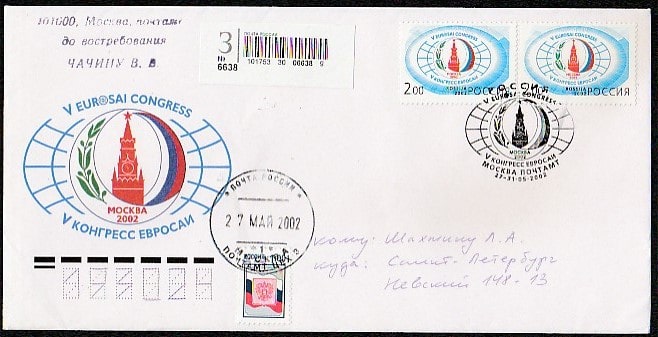 101000, Москва, почтамт
до востребования
ЧАЧИНУ В. В
ПОЧТА РОССИИ
З
№
6638
101763 30 06638 9
V EUROSAI CONGRESS
МОСКВА
2002
V КОНГРЕСС ЕВРОСАИ
V EUROSAI CONGRESS
МОСКВА
2002
V КОНГРЕСС ЕВРОСАИ
2.00
РОССИЯ
V EUROSAI CONGRESS
V КОНГРЕСС ЕВРОСАИ
ROSSIJA
РОССИЯ
РОССИЯ
V EUROSAI CONGRESS
МОСКВА
2002
V КОНГРЕСС ЕВРОСАИ
МОСКВА ПОЧТАМТ
27-31-05-2002
ПОЧТА РОССИИ
27 МАЙ 2002
МОСКВА
ПОЧТАМТ ЦЕХ 3
кому: Шахтину Л. А.
куда: Санкт-Петербург
Невский 148-13